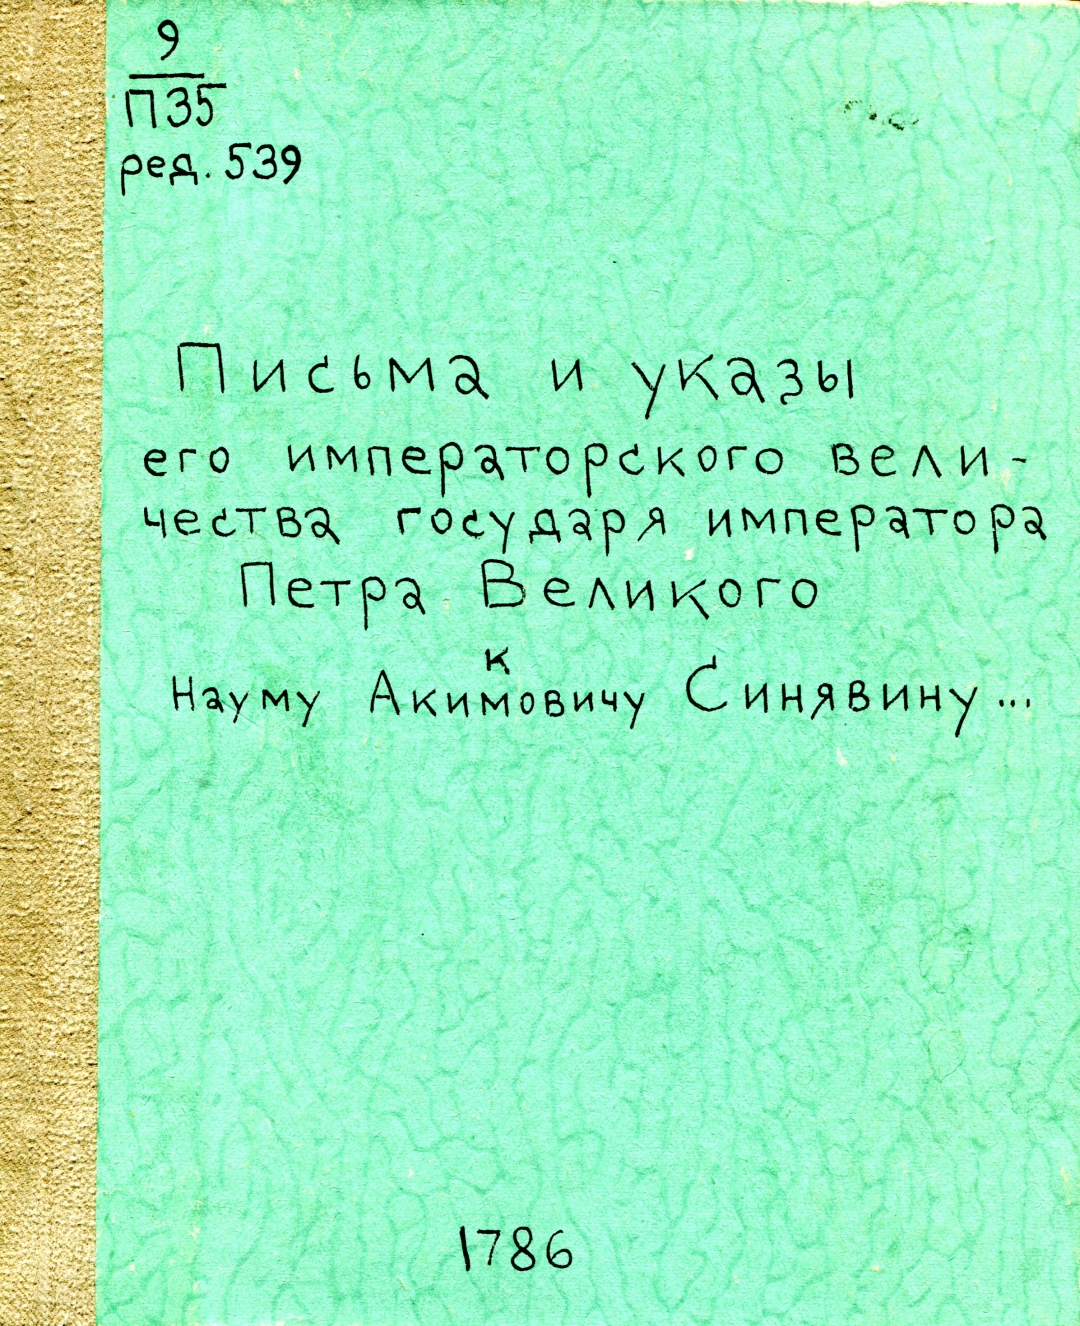 9
П35
ред. 539
Письма и указы
его императорского вели-
чества государя императора
Петра Великого
к
Науму Акимовичу Синявину...
1786